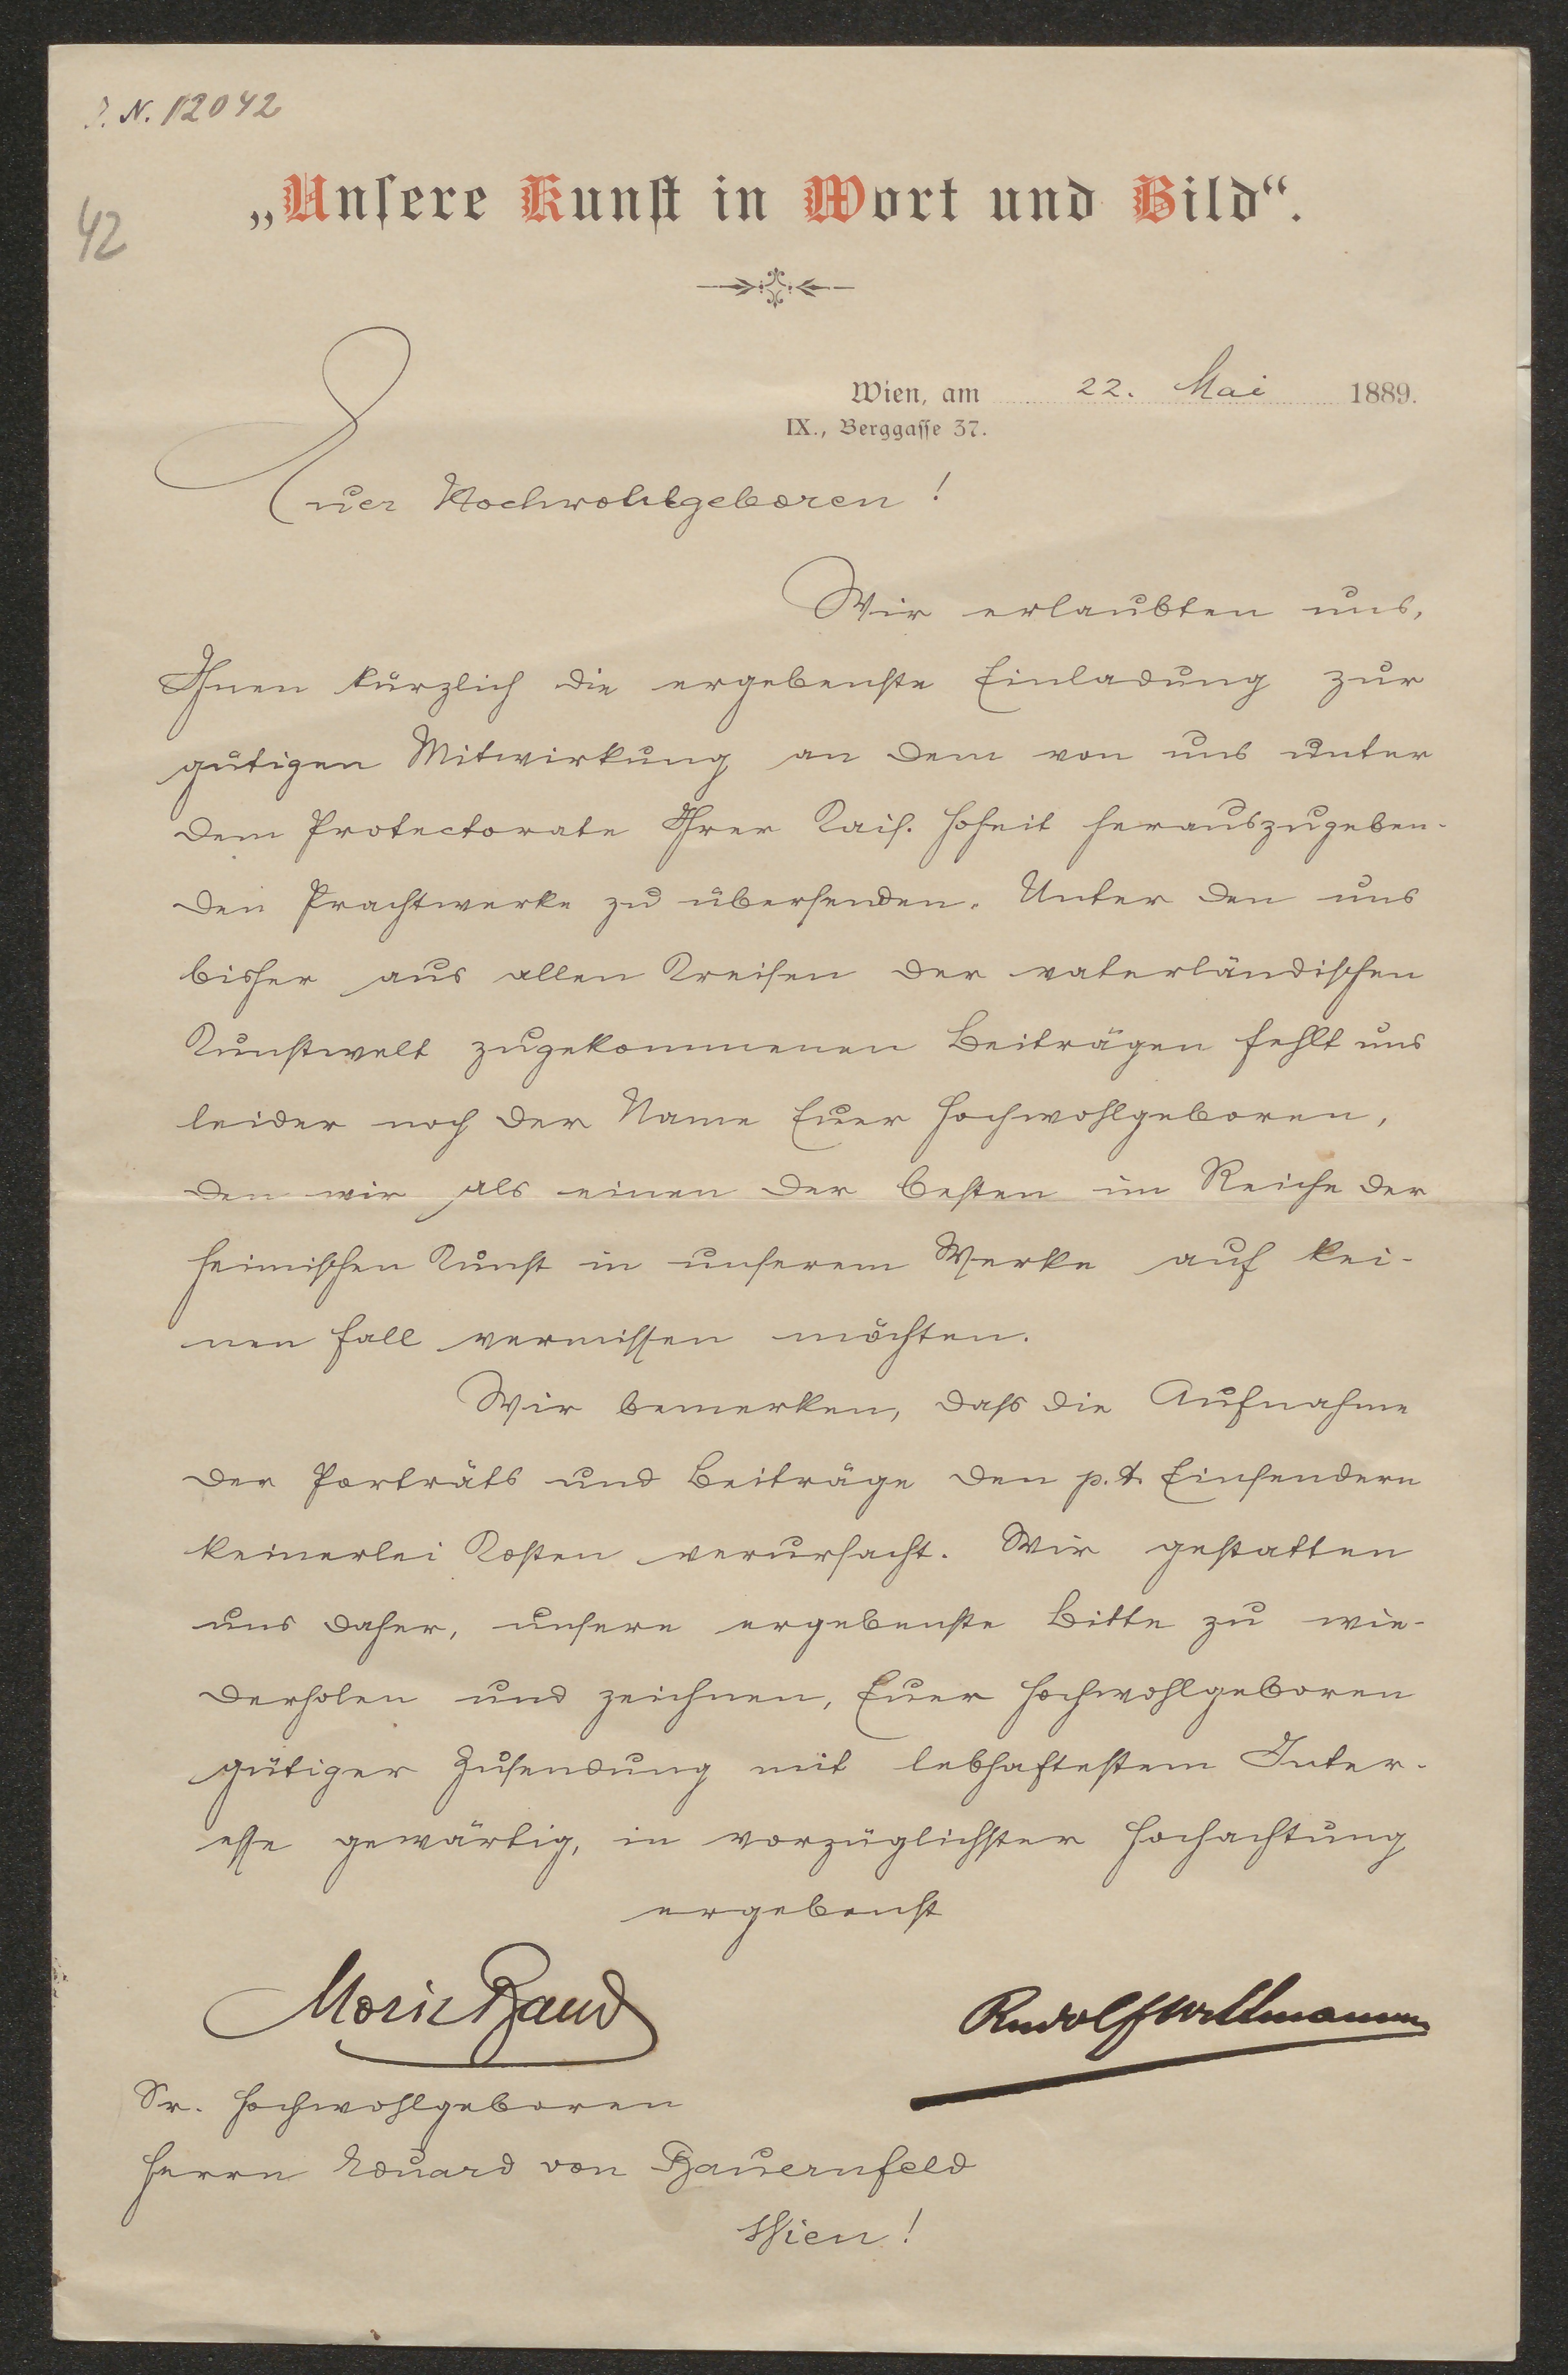 I. N. 12042
42
„Unſere Kunſt in Wort und Bild“.
Wien, am 22. Mai 1889.
IX., Berggaſſe 37.
Euer Hochwohlgeboren!
Wir erlaubten uns,
Ihnen kürzlich die ergebenste Einladung zur
gütigen Mitwirkung an dem von uns unter
dem Protectorate Ihrer Kais. Hoheit herauszugeben-
den Prachtwerke zu übersenden. Unter den uns
bisher aus allen Kreisen der vaterländischen
Kunstwelt zugekommenen Beiträgen fehlt uns
leider noch der Name Euer Hochwohlgeboren,
den wir als einen der besten im Reiche der
heimischen Kunst in unserem Werke auf kei-
nen Fall vermissen möchten.
Wir bemerken, dass die Aufnahme
der Porträts und Beiträge den p. t. Einsendern
keinerlei Kosten verursacht. Wir gestatten
uns daher, unsere ergebenste Bitte zu wie-
derholen und zeichnen, Euer Hochwohlgeboren
gütiger Zusendung mit lebhaftestem Inter-
esse gewärtig, in vorzüglichster Hochachtung
ergebenst
Moriz Band
Rudolf Wittmann
Sr. Hochwohlgeboren
Herrn Eduard von Bauernfeld
Wien!